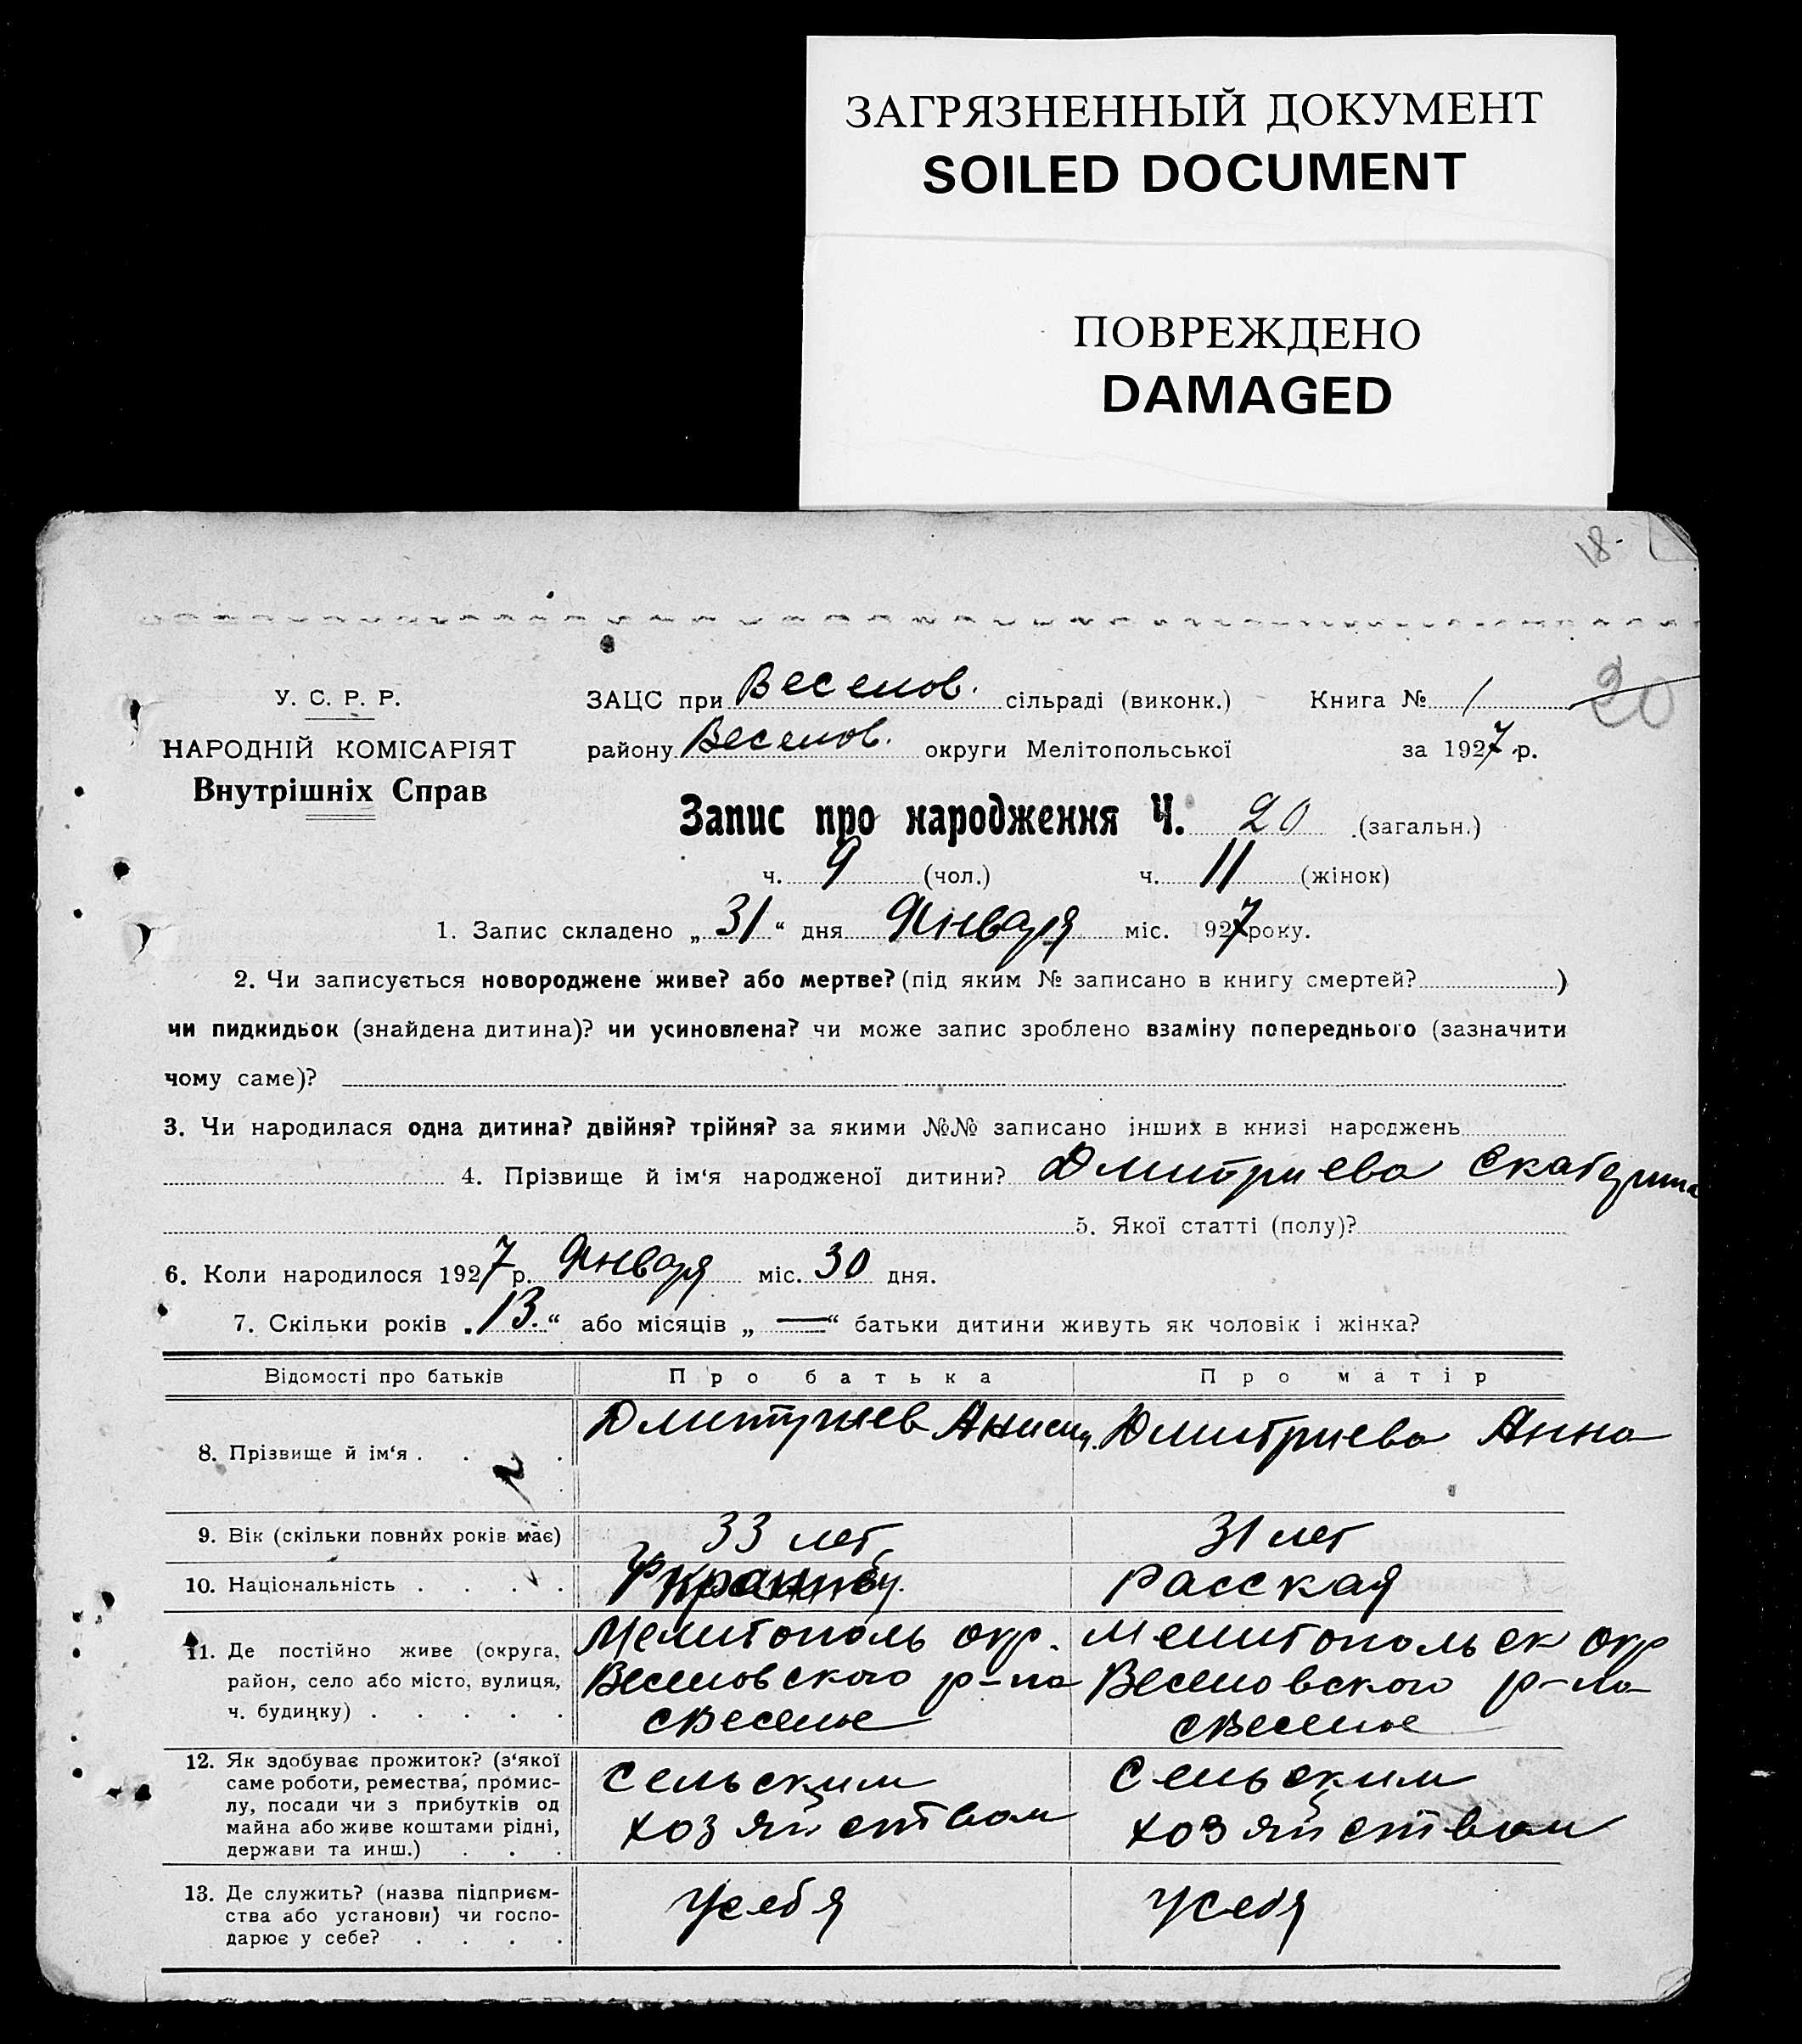 ЗАГРЯЗНЕННЫЙ ДОКУМЕНТ
SOILED DOCUMENT
ПОВРЕЖДЕНО
DAMAGED
18.
20
У. С. Р. Р.
НАРОДНІЙ КОМІСАРІЯТ
Внутрішніх Справ
ЗАЦС при Веселов. сільраді (виконк.) Книга № 1
району Веселов. округи Мелітопольської за 1927 р.
Запис про народження Ч. 20 (загальн.)
ч. 9 (чол.) ч. 11 (жінок)
1. Запис складено „31“ дня Января міс. 1927 року.
2. Чи записується новороджене живе? або мертве? (під яким № записано в книгу смертей? )
чи пидкидьок (знайдена дитина)? чи усиновлена? чи може запис зроблено взаміну попереднього (зазначити
чому саме)?
3. Чи народилася одна дитина? двійня? трійня? за якими №№ записано інших в книзі народжень
4. Прізвище й ім‘я народженої дитини? Дмитриева Екатерина
5. Якої статті (полу)?
6. Коли народилося 1927 р. Января міс. 30 дня.
7. Скільки років „13.“ або місяців „—“ батьки дитини живуть як чоловік і жінка?
Відомості про батьків Про батька Про матір
8. Прізвище й ім‘я . . . . Дмитриев Дмитриева Анна
9. Вік (скільки повних років має) 33 лет 31 лет
10. Національність . . . . Расская
11. Де постійно живе (округа, Мелитополь окр. Мелитопольск окр
район, село або місто, вулиця, Веселовского р-на Веселовского р-на
ч. будинку) . . . . . сВеселое сВеселое
12. Як здобуває прожиток? (з‘якої
саме роботи, ремества, промис- Сельским Сельским
лу, посади чи з прибутків од
майна або живе коштами рідні, хозяйством хозяйством
держави та инш.) . . .
13. Де служить? (назва підприєм-
ства або установи) чи госпо- Усебя Усебя
дарює у себе? . . . .